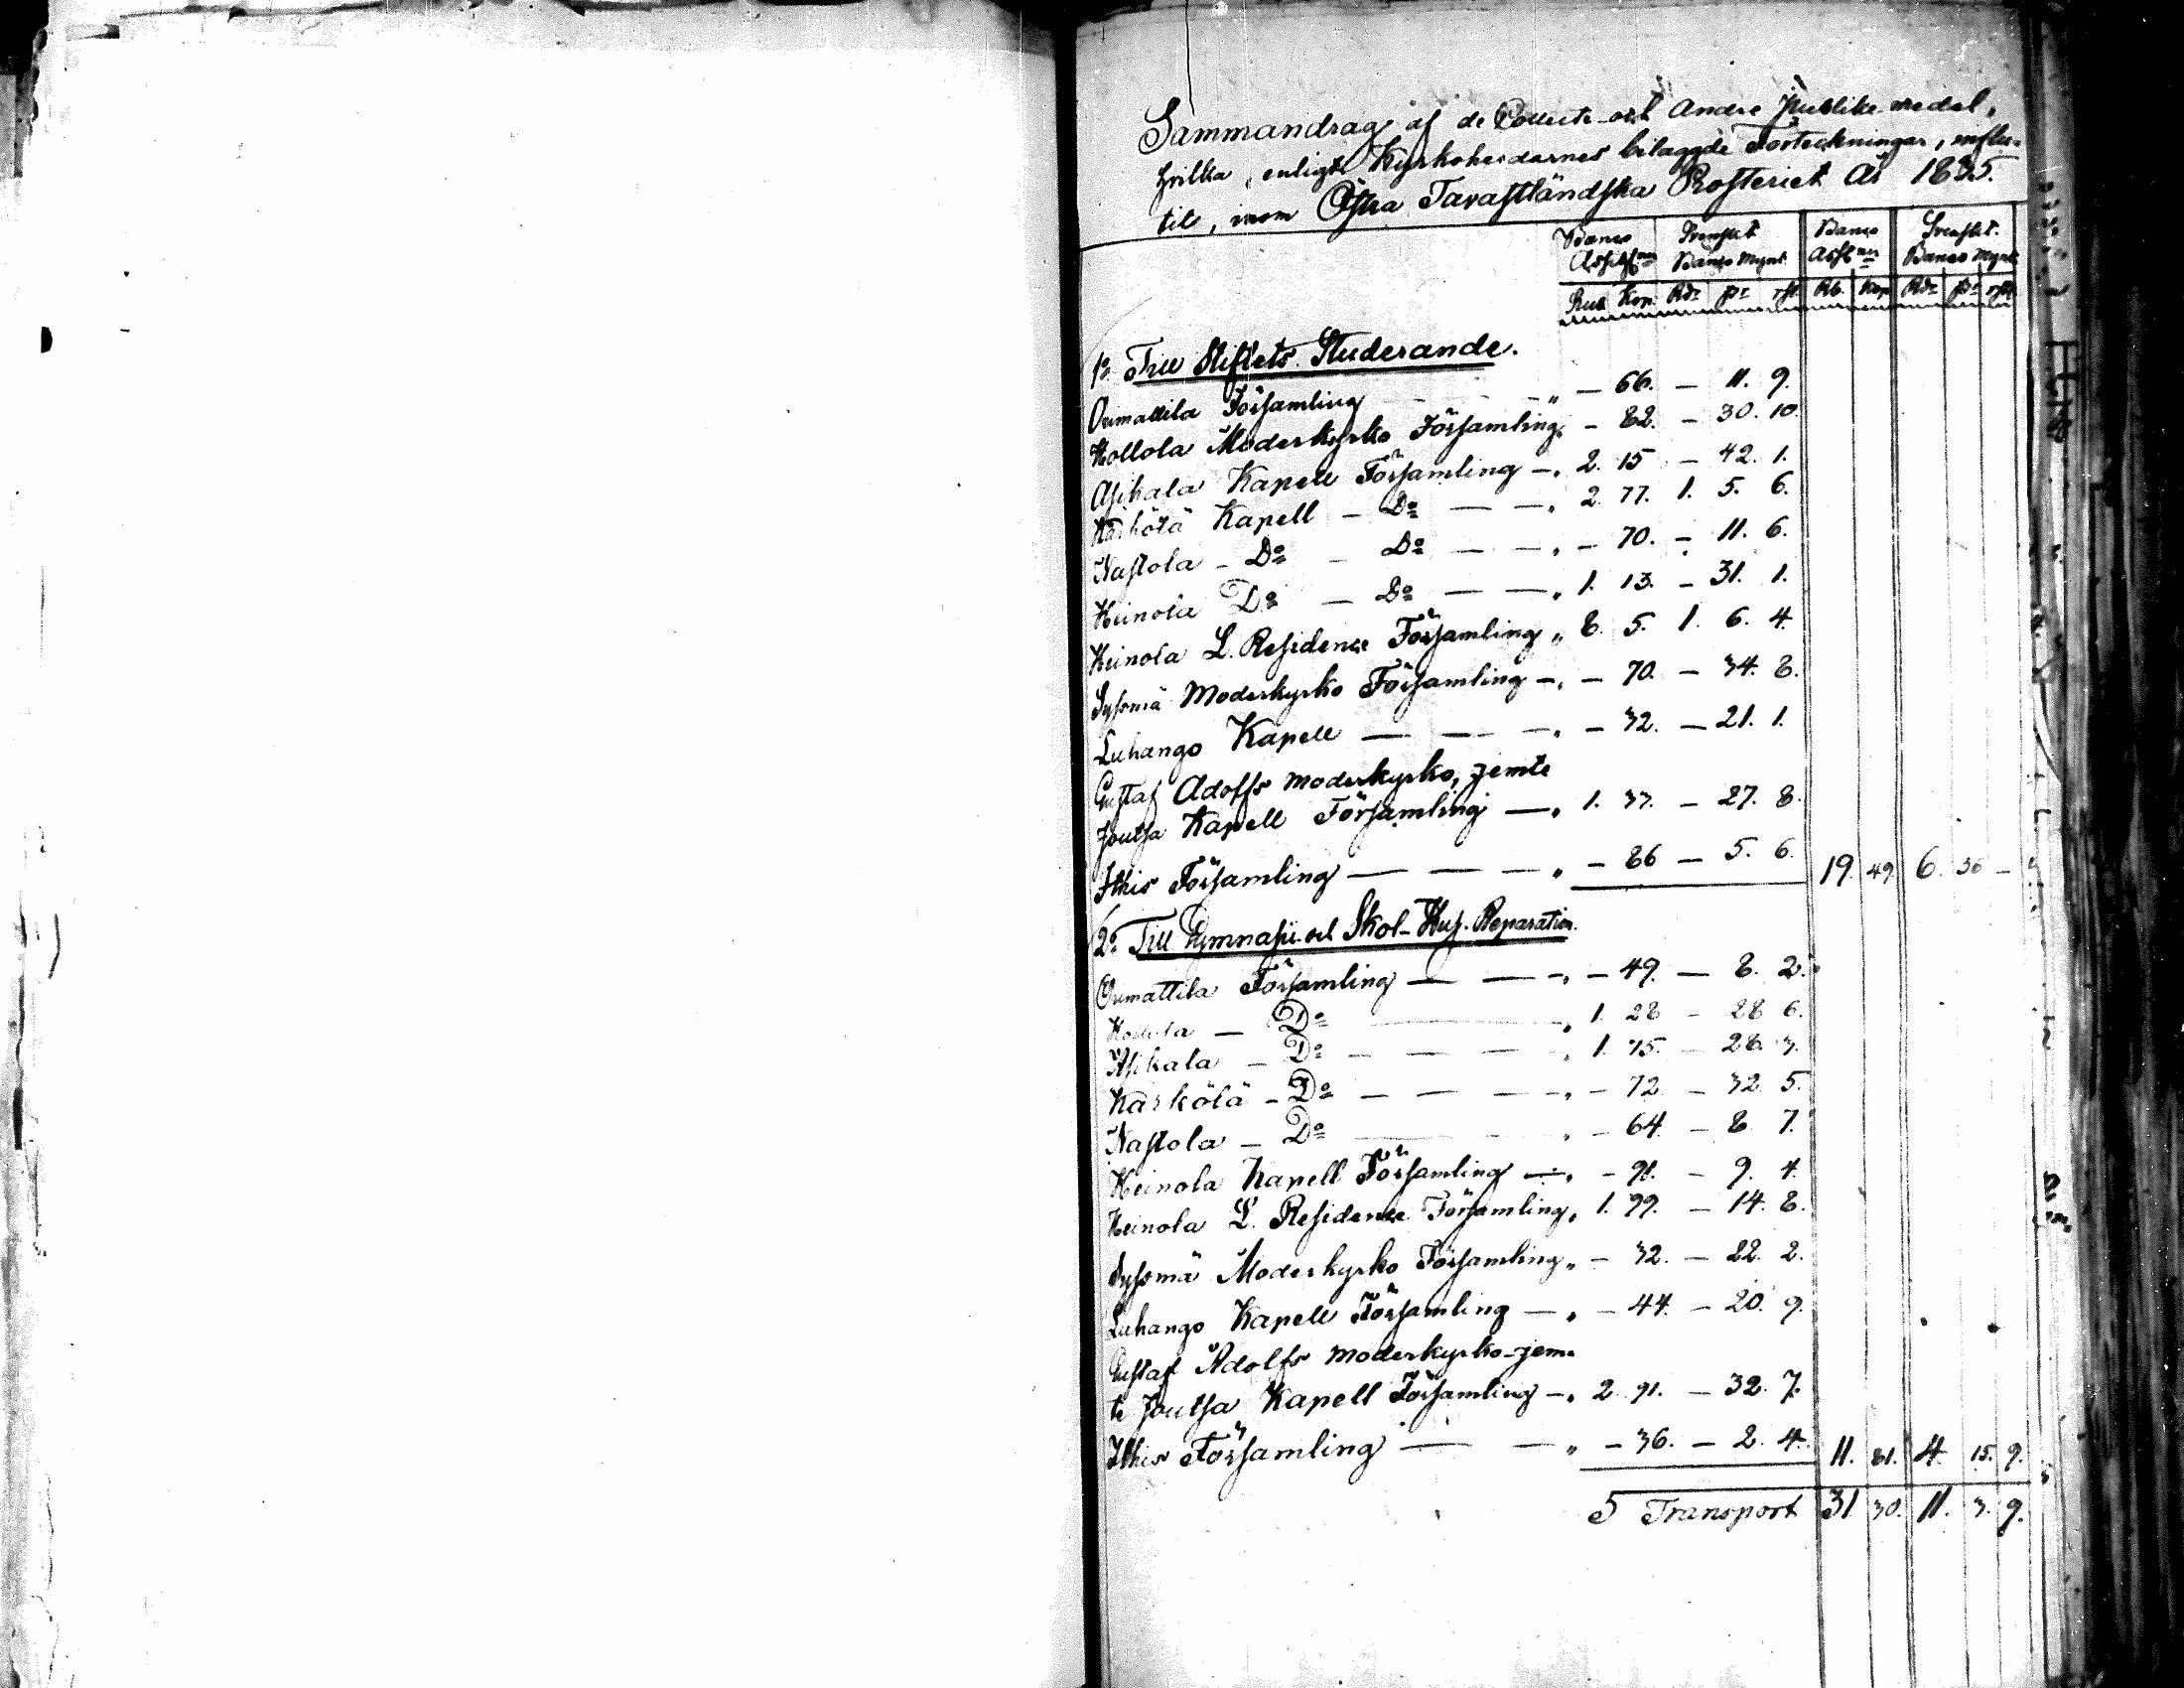 Sammandrag af de Collecte och Andre Publike medel,
hvilka, enligt Kyrkoherdarnes bilagde Förteckningar, influ-
tit, inom Östra Tavastländska Prosteriet År 1835.
Banco Svenskt Banco Svenskt
Assign. Banco Mynt. Assign. Banco Mynt
Rub. Kop. Rdr s. rst. Rb. Kop Rdr s. rst.
1o Till Stiftets Studerande.
Orimattila Församling „ — 66. — 11. 9.
Hollola Moderkyrko Församling — 82. — 30. 10.
Asikala Kapell Församling — „ 2. 15 — 42. 1.
Kärkölä Kapell — Do — — „ 2. 77. 1. 5. 6.
Nastola — Do — Do — — „ — 70. — 11. 6.
Heinola Do — Do — — „ 1. 13. — 31. 1.
Heinola L. Residence Församling „ 8. 5. 1. 6. 4.
Sysmä Moderkyrko Församling — „ — 70. — 34. 8.
Luhango Kapell — — — „ — 32. — 21. 1.
Gustaf Adolfs moderkyrko, jemte
Joutsa Kapell Församling — „ 1. 33. — 27. 8.
Ithis Församling — — — „ — 86 — 5. 6. 19. 49. 6. 36 —
2o Till Gymnasii och Skol-Hus-Reparation.
Orimattila Församling — — „ — 49. — 8. 2.
Hollola — Do — „ 1. 28 — 28 6.
Asikala — Do — — — „ 1. 75. — 28. 3.
Kärkölä — Do — — — „ — 72 — 32. 5.
Nastola — Do „ — 64. — 8 7.
Heinola Kapell Församling — „ — 91. — 9. 4.
Heinola L. Residence Församling „ 1. 99. — 14. 8.
Sysmä Moderkyrko Församling „ — 32. — 22. 2.
Luhango Kapell Församling — „ — 44. — 20. 9.
Gustaf Adolfs moderkyrko-jem-
te Joutsa Kapell Församling — „ 2. 91. — 32. 7.
Ithis Församling — — „ — 36. — 2. 4. 11. 81. 4. 15. 9.
Transport 31 30. 11. 3. 9.